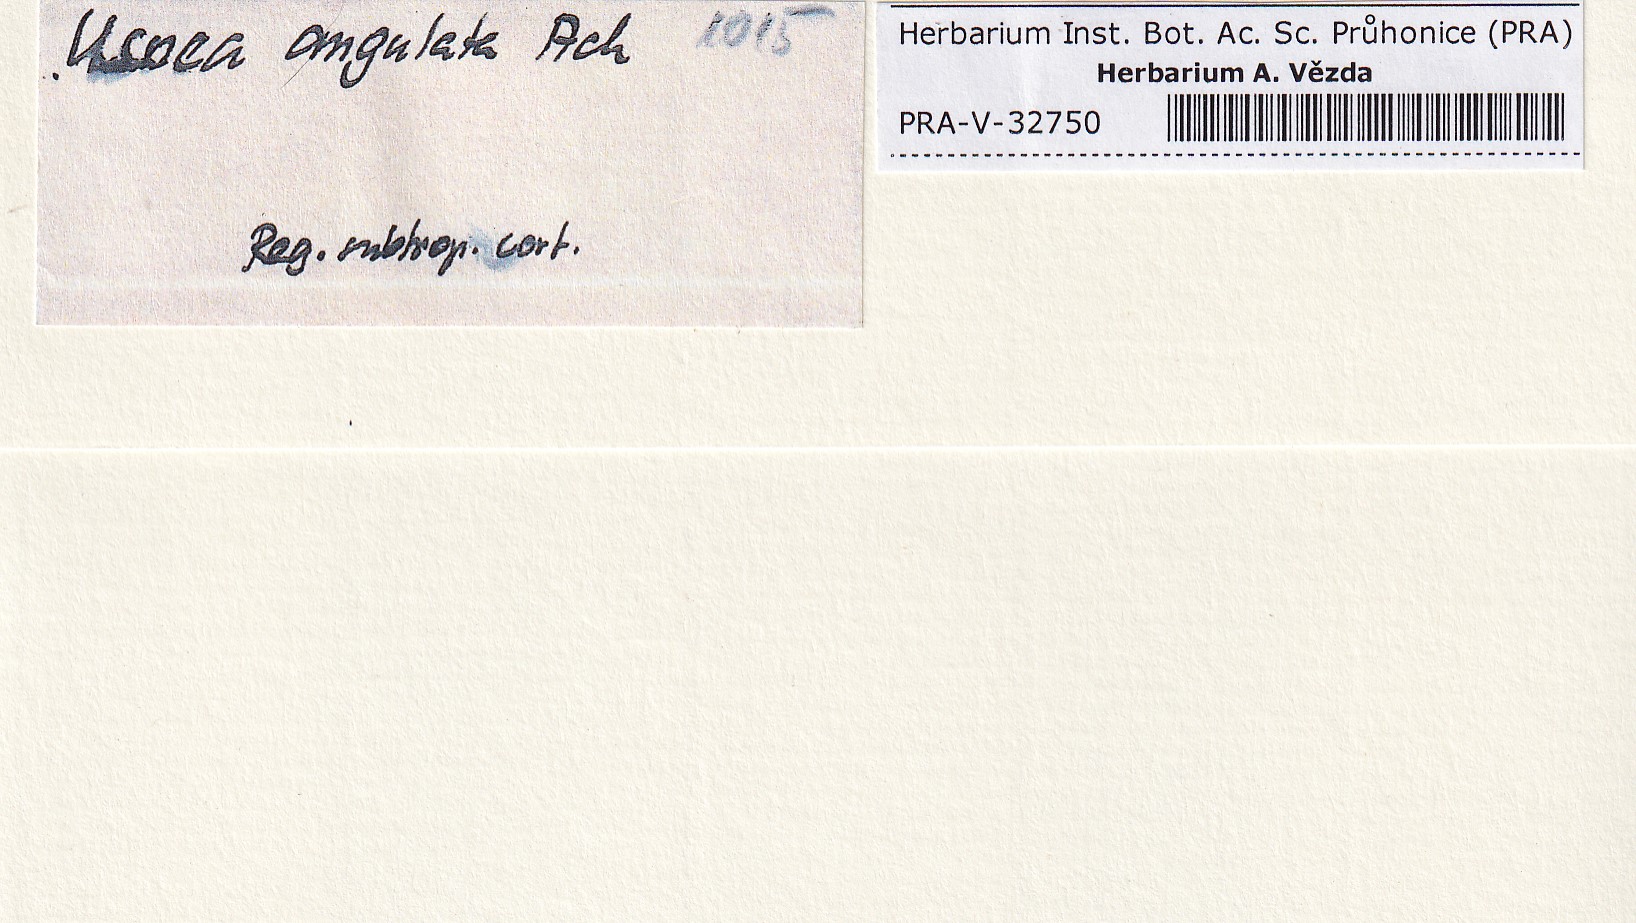 Usnea angulata Ach 1015
Reg. subtrop. cort.
Herbarium Inst. Bot. Ac. Sc. Průhonice (PRA)
Herbarium A. Vězda
PRA-V-32750